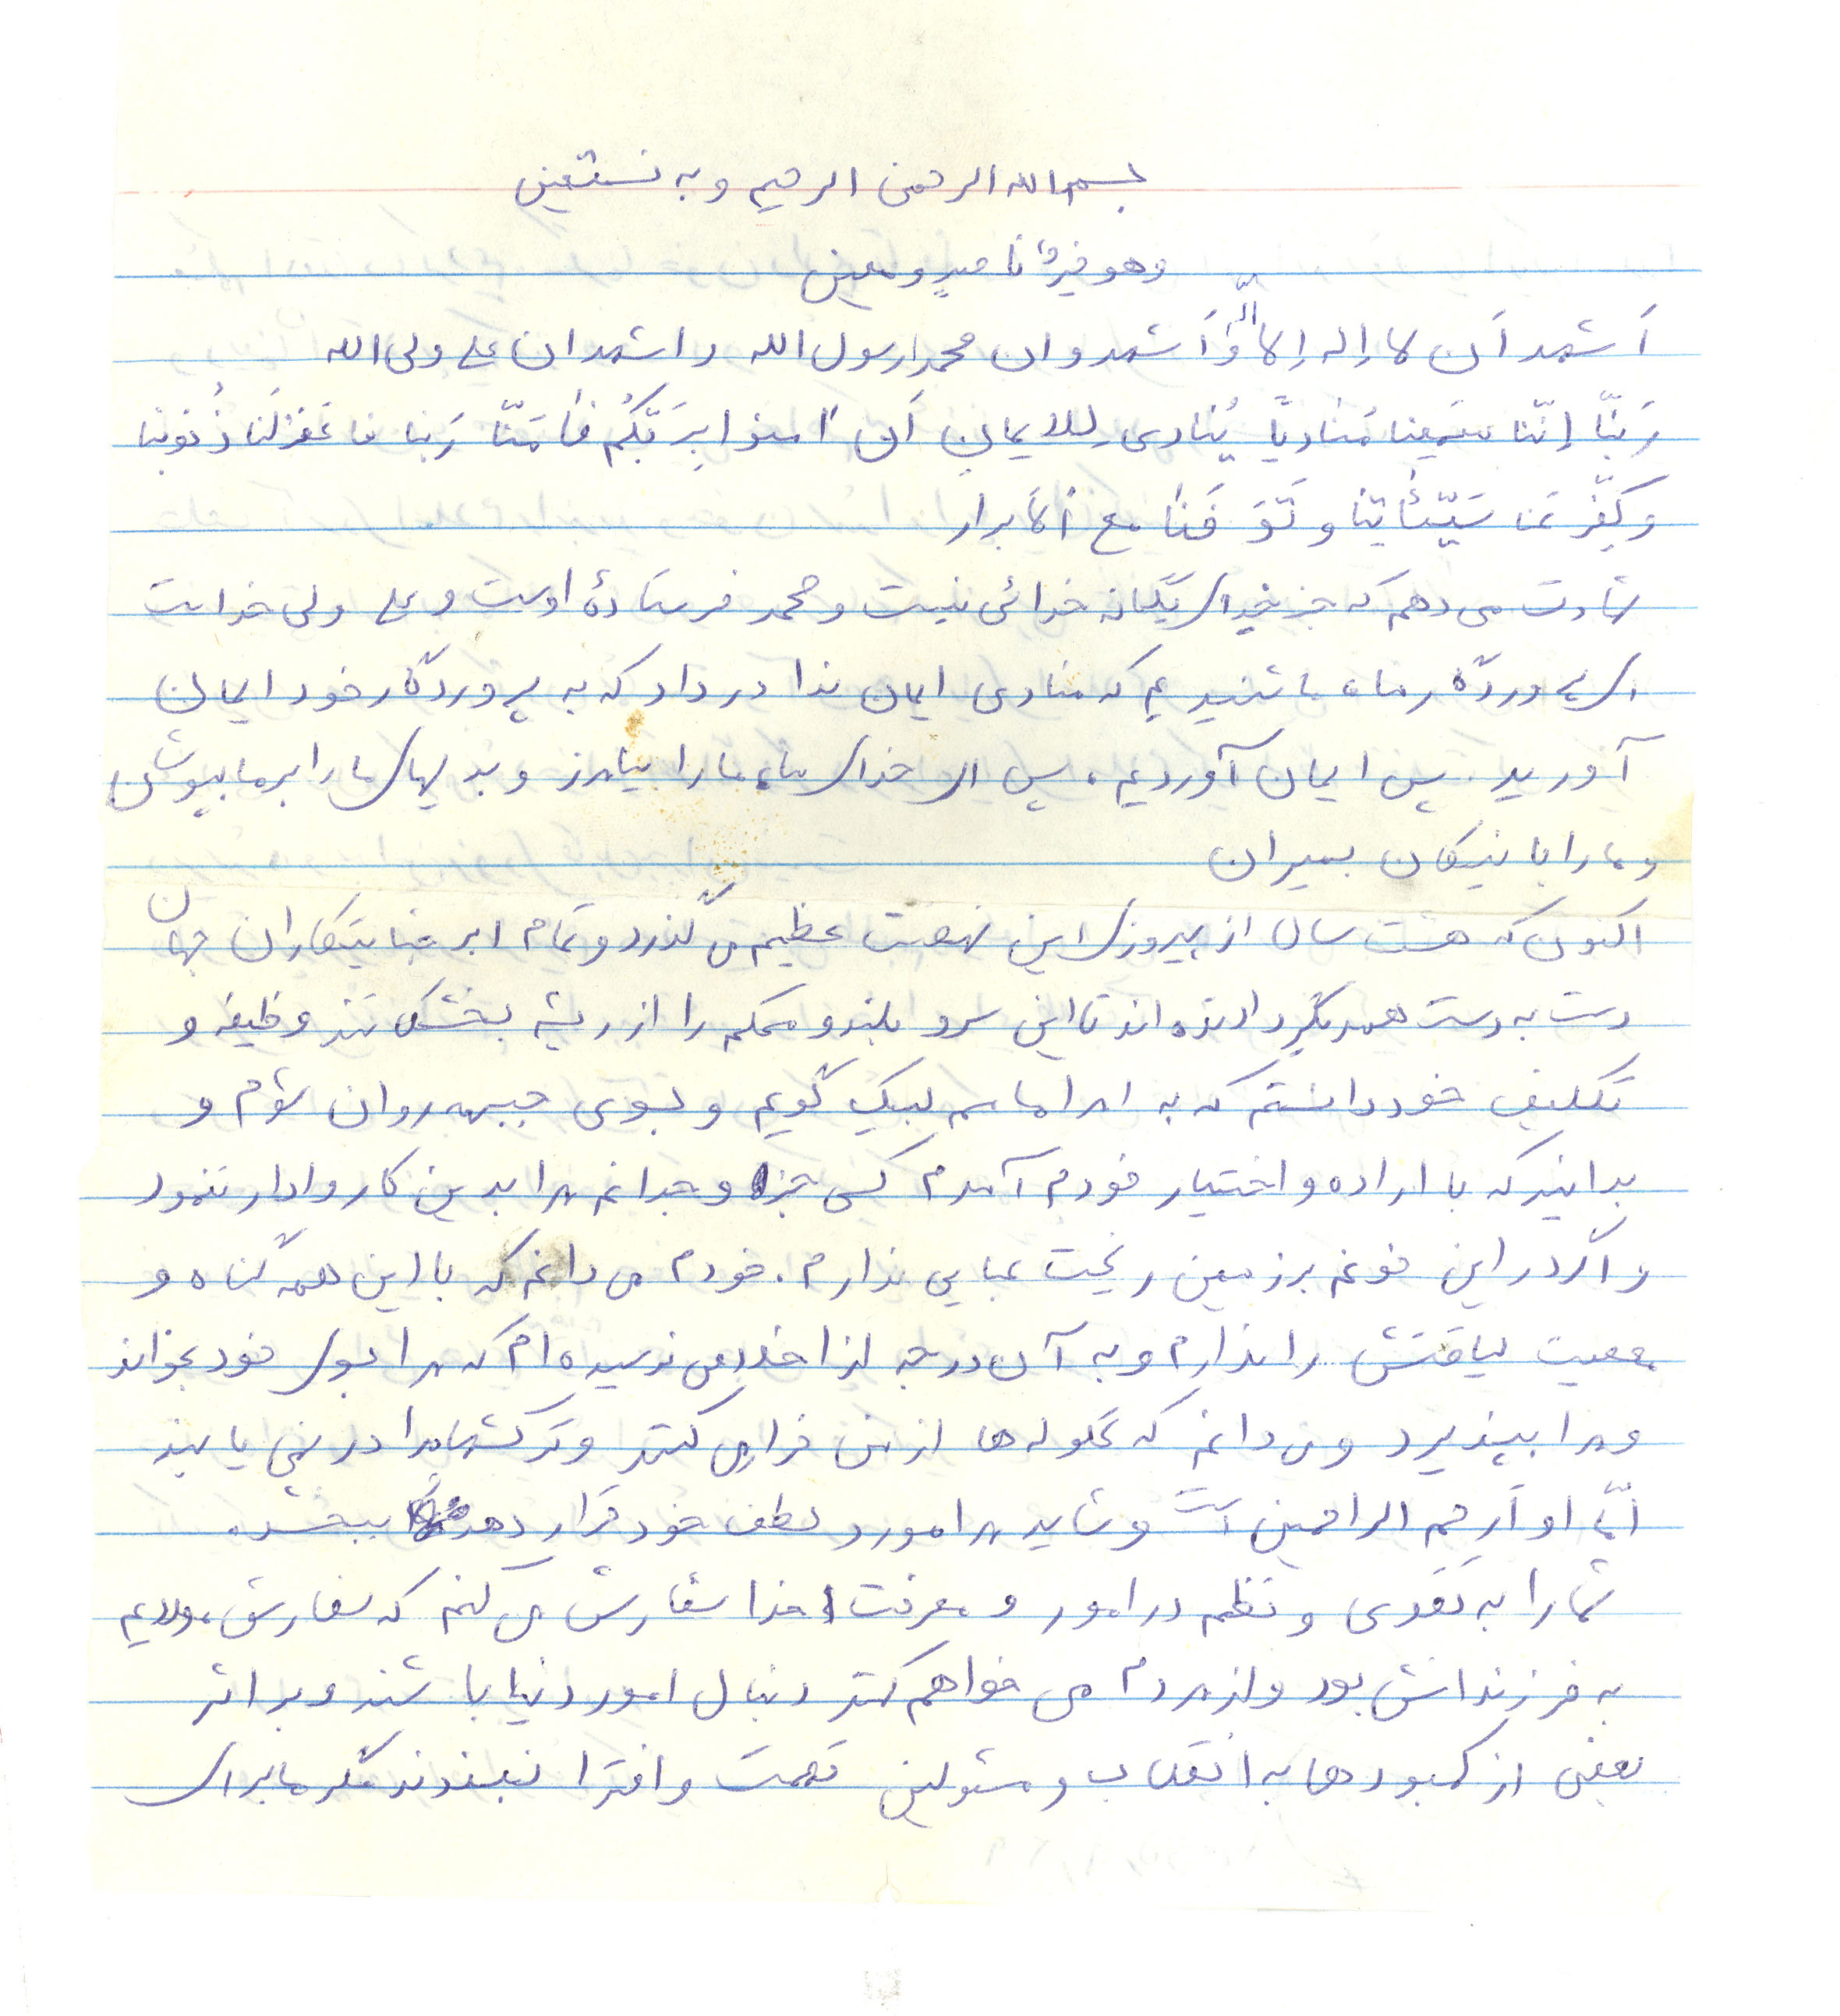 بسم الله الرحمن الرحیم و به نستعین
و هو خیرٌ ناصرٍ و معین
اَشهد اَن لا اِله اِلا الله وَ اَشهد و ان محمدا رسول الله و اشهد ان علی ولی الله
رَبَّنا اِنَّنا سَمِعنا مُنادیاً یُنادی لِلایمانِ اَن امنوا بِرَبِّکُم فَامَنّا رَبنا فاغفرلَنا ذُنوبنا
وَ کَفِّر عَنا سَیِّئاتِنا و تَوَفَّنا مع اَلابرار
شهادت می دهم که جز خدای یگانه خدائی نیست و محمد فرستادهٔ اوست و علی ولی خداست
ای پروردگار ما، ما شنیدیم که منادی ایمان ندا در داد که به پروردگار خود ایمان
آورید. پس ایمان آوردیم، پس ای خدای ما، ما را بیامرز و بدیهای ما را بر ما بپوشان
و ما را با نیکان بمیران
اکنون که هشت سال از پیروزی این نهضت عظیم می گذرد و تمام ابر جنایتکاران جهان
دست به دست همدیگر داده اند تا این سرو بلند و محکم را از ریشه بخشکانند وظیفه و
تکلیف خود دانستم که به امر امامم لبیک گویم و بسوی جبهه روان شوم و
بدانید که با اراده و اختیار خودم آمدم کسی جز وجدانم مرا بدین کار وادار ننمود
و اگر در این خونم بر زمین ریخت عبایی ندارم. خودم می دانم که با این همه گناه و
معصیت لیاقتش را ندارم و به آن درجه از اخلاص نرسیده ام که مرا بسوی خود بخواند
و مرا بپذیرد و می دانم که گلوله ها از من فرار می کنند و ترکشها مرا در نمی یابند
امّا او اَرحم الراحمین است و شاید مرا مورد لطف خود قرار دهد ببخشد.
شما را به تقوی و نظم در امور و معرفت خدا سفارش می کنم که سفارش مولایم
به فرزندانش بود و از مردم می خواهم کمتر دنبال امور دنیا باشند و بر اثر
بعضی از کمبودها به انقلاب و مسئولین تهمت و افترا نبندند مگر ما برای